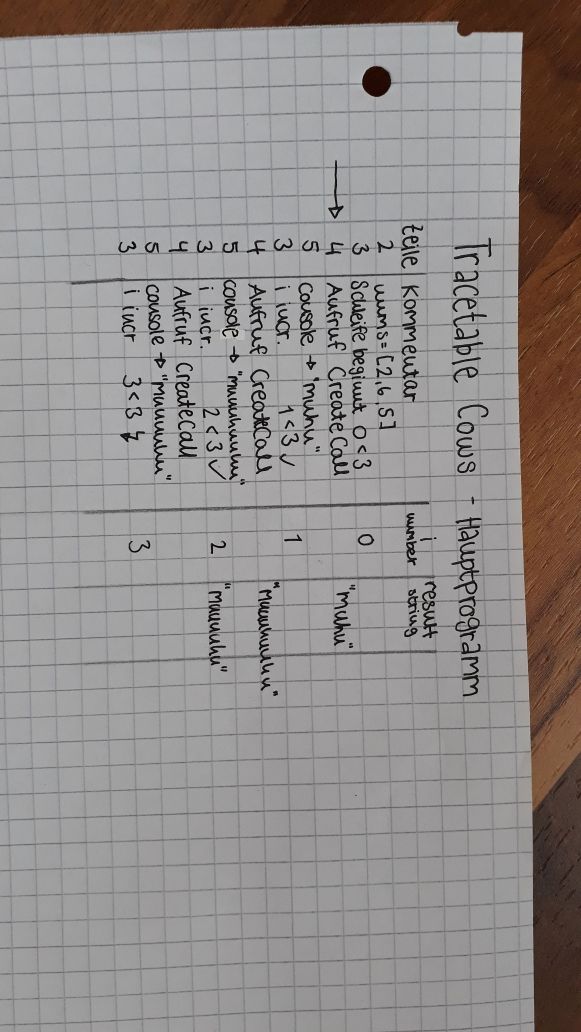 Tracetable Cows - Hauptprogramm
Zeile Kommentar i number result string
2 nums = [2,6,5]
3 Schleife beginnt 0<3 0
4 Aufruf CreateCall "muhu"
5 console → "muhu"
3 i incr. 1<3 ✓ 1
4 Aufruf CreateCall "muuuhuuuhu"
5
3 i incr. 2<3 ✓ 2
4 Aufruf CreateCall
5
3 i incr 3<3 ↯ 3